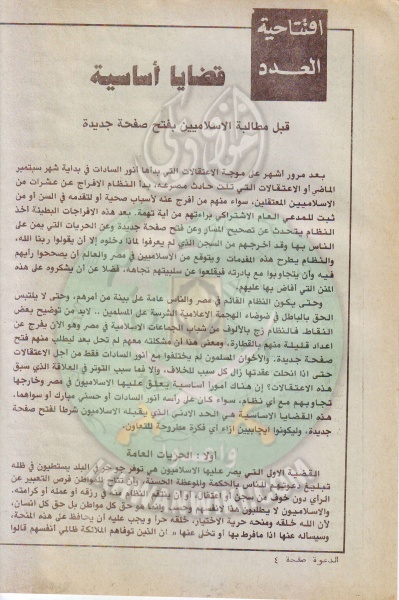 افتتاحية
العدد
قضايا أساسية
قبل مطالبة الاسلاميين بفتح صفحة جديدة
بعد مرور أشهر على موجة الاعتقالات التي بدأها أنور السادات في بداية شهر سبتمبر
الماضي أو الاعتقالات التي تلت حادث مصرعه، بدأ النظام الافراج عن عشرات من
الاسلاميين المعتقلين، سواء منهم من أفرج عنه لأسباب صحية أو لتقدمه في السن أو من
ثبت للمدعي العام الاشتراكي براءتهم من أية تهمة. بعد هذه الافراجات البطيئة أخذ
النظام يتحدث عن تصحيح المسار وعن فتح صفحة جديدة وعن الحريات التي يمن على
الناس بها وقد أخرجهم من السجن الذي لم يعرفوا لماذا دخلوه إلا أن يقولوا ربنا الله،
والنظام يطرح هذه المقدمات ويتوقع من الاسلاميين في مصر والعالم أن يصححوا رأيهم
فيه وأن يتجاوبوا مع بادرته فيقلعوا عن سلبيتهم تجاهه، فضلا عن أن يشكروه على هذه
المنن التي أفاض بها عليهم.
وحتى يكون النظام القائم في مصر والناس عامة على بينة من أمرهم، وحتى لا يلتبس
الحق بالباطل في ضوضاء الهجمة الاعلامية الشرسة على المسلمين .. لابد من توضيح بعض
النقاط. فالنظام زج بالألوف من شباب الجماعات الاسلامية في مصر وهو الآن يفرج عن
اعداد قليلة منهم بالقطارة، ومعنى هذا أن مشكلته معهم لم تحل بعد ليطلب منهم فتح
صفحة جديدة. والأخوان المسلمون لم يختلفوا مع أنور السادات فقط من أجل الاعتقالات
حتى اذا انحلت عقدتها زال كل سبب للخلاف، وإلا فما سبب التوتر في العلاقة الذي سبق
هذه الاعتقالات؟ إن هناك أمورا أساسية يعلق عليها الاسلاميون في مصر وخارجها
تجاوبهم مع أي نظام، سواء كان على رأسه أنور السادات أو حسني مبارك أو سواهما،
هذه القضايا الاساسية هي الحد الادنى الذي يقبله الاسلاميون شرطا لفتح صفحة
جديدة، وليكونوا ايجابيين ازاء أي فكرة مطروحة للتعاون.
أولا : الحريات العامة
القضية الأولى التي يصر عليها الاسلاميون هي توفر جو حر في البلد يستطيعون في ظله
تبليغ دعوتهم للناس بالحكمة والموعظة الحسنة، وأن تتاح للمواطن فرص التعبير عن
الرأي دون خوف من سجن أو اعتقال، أو أن ينتقم النظام منه في رزقه أو عمله أو كرامته.
والاسلاميون لا يطلبون هذا لأنفسهم وانما هو حق كل مواطن بل حق كل انسان،
لأن الله خلقه ومنحه حرية الاختيار، خلقه حرا ويجب عليه أن يحافظ على هذه المنحة،
وسيسأله عنها اذا ما فرط بها أو تخلى عنها « ان الذين توفاهم الملائكة ظالمي أنفسهم قالوا
الدعوة صفحة ٤